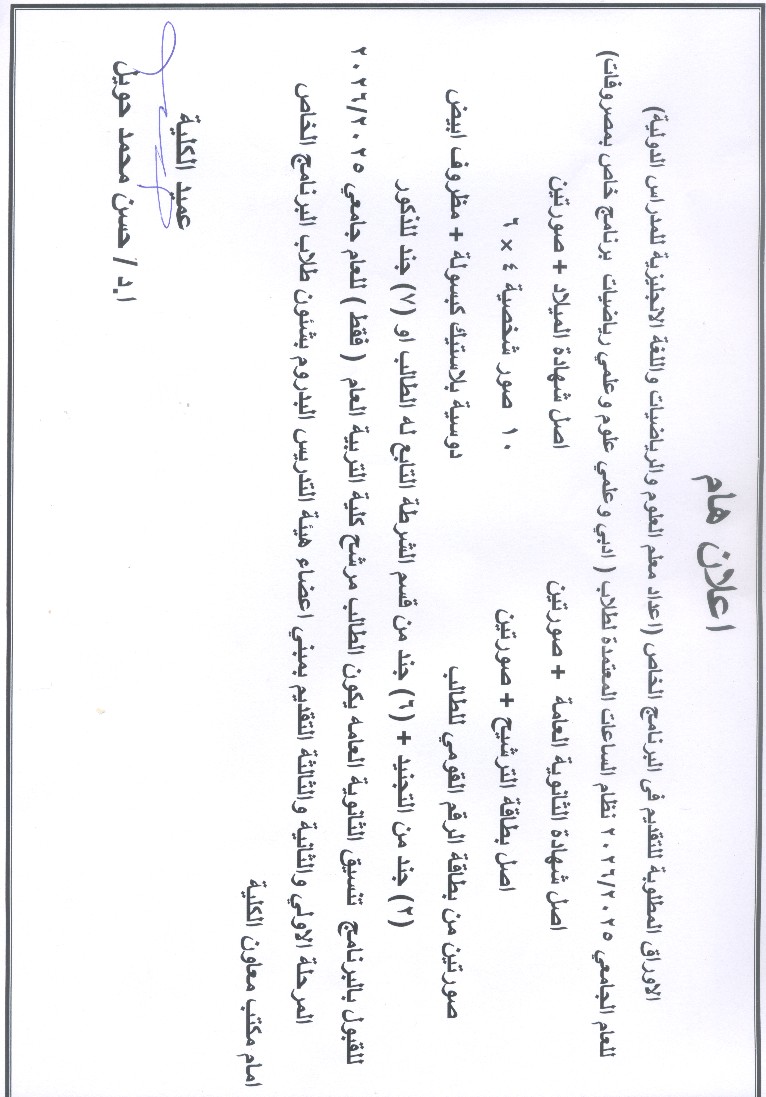 اعلان هام
الاوراق المطلوبة للتقديم في البرنامج الخاص (اعداد معلم العلوم والرياضيات واللغة الانجليزية للمدراس الدولية)
للعام الجامعي ٢٠٢٦/٢٠٢٥ نظام الساعات المعتمدة لطلاب ( ادبي وعلمي علوم وعلمي رياضيات برنامج خاص بمصروفات)
اصل شهادة الثانوية العامة + صورتين اصل شهادة الميلاد + صورتين
اصل بطاقة الترشيح + صورتين ١٠ صور شخصية ٤ × ٦
صورتين من بطاقة الرقم القومي للطالب دوسية بلاستيك كبسولة + مظروف ابيض
(٢) جند من التجنيد + (٦) جند من قسم الشرطة التابع له الطالب او (٧) جند للذكور
للقبول بالبرنامج تنسيق الثانوية العامه يكون الطالب مرشح كلية التربية العام ( فقط ) للعام جامعي ٢٠٢٦/٢٠٢٥
المرحلة الاولي والثانية والثالثة التقديم بمبني اعضاء هيئة التدريس البدروم بشئون طلاب البرنامج الخاص
امام مكتب معاون الكلية
عميد الكلية
ا.د / حسن محمد حويل